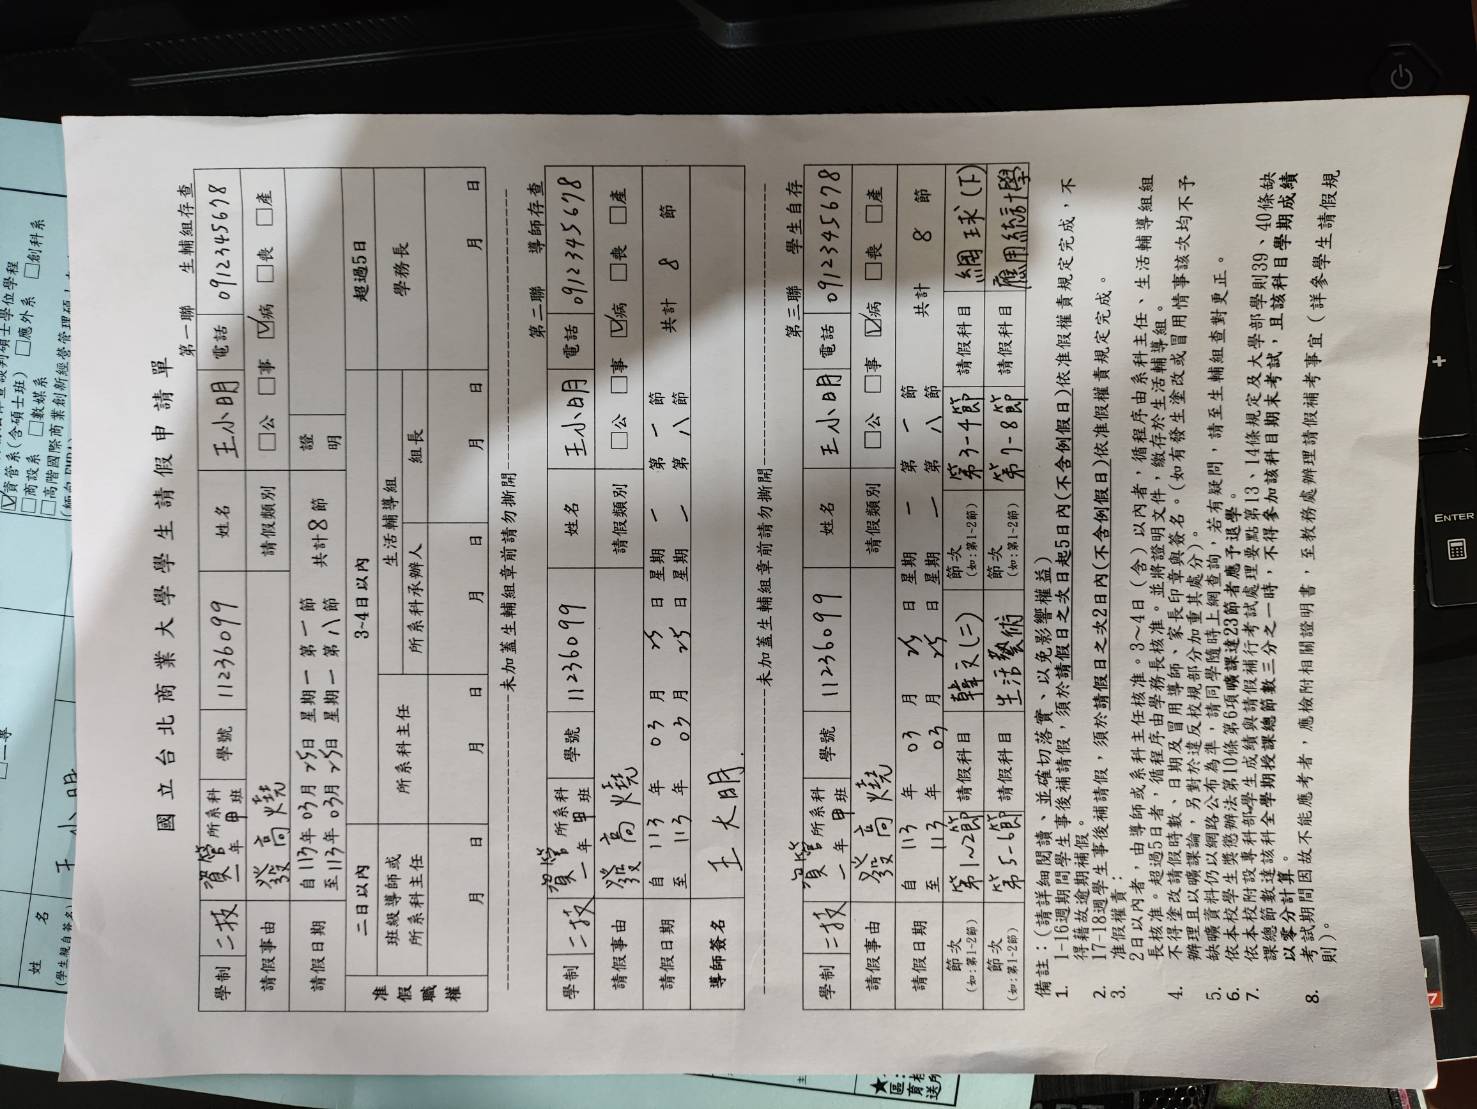 國立台北商業大學學生請假申請單
第一聯 生輔組存查
學制 二技 資管 所系科 二年甲班 學號 11236099 姓名 王小明 電話 0912345678
請假事由 發高燒 請假類別 □公 □事 ☑病 □喪 □產
請假日期 自113年03月25日 星期一 第一節
至113年03月25日 星期一 第八節
共計8節 證明
准假職權 二日以內 3~4日以內 超過5日
班級導師或所系科主任 所系科主任 生活輔導組 學務長
所系科承辦人 組長
月 日 月 日 月 日 月 日 月 日
未加蓋生輔組章前請勿撕開
第二聯 導師存查
學制 二技 資管 所系科 二年甲班 學號 11236099 姓名 王小明 電話 0912345678
請假事由 發高燒 請假類別 □公 □事 ☑病 □喪 □產
請假日期 自 113 年 03 月 25 日 星期 一 第 一 節
至 113 年 03 月 25 日 星期 一 第 八 節
共計 8 節
導師簽名 王大明
未加蓋生輔組章前請勿撕開
第三聯 學生自存
學制 二技 資管 所系科 二年甲班 學號 11236099 姓名 王小明 電話 0912345678
請假事由 發高燒 請假類別 □公 □事 ☑病 □喪 □產
請假日期 自 113 年 03 月 25 日 星期 一 第 一 節
至 113 年 03 月 25 日 星期 一 第 八 節
共計 8 節
節次 (如:第1-2節) 第1~2節 請假科目 韓文(二) 節次 (如:第1-2節) 第3-4節 請假科目 網球(下)
節次 (如:第1-2節) 第5-6節 請假科目 生活藝術 節次 (如:第1-2節) 第7-8節 請假科目 應用統計學
備註：(請詳細閱讀、並確切落實、以免影響權益)
1. 1-16週期間學生事後補請假，須於請假日之次日起5日內(不含例假日)依准假權責規定完成，不
得藉故逾期補假。
2. 17-18週學生事後補請假，須於請假日之次2日內(不含例假日)依准假權責規定完成。
3. 准假權責：
2日以內者，由導師或系科主任核准。3～4日(含)以內者，循程序由系科主任、生活輔導組組
長核准。超過5日者，循程序由學務長核准。並將證明文件，繳存於生活輔導組。
4. 不得塗改請假時數、日期及冒用導師、家長印章與簽名。(如有發生塗改或冒用情事該次均不予
辦理且以曠課論，另對於違反校規部分加重其處分)。
5. 缺曠資料仍以網路公布為準，請同學隨時上網查詢，若有疑問，請至生輔組查對更正。
6. 依本校學生獎懲辦法第10條第6項曠課達23節者應予退學。
7. 依本校附設專科部學生成績與請假補行考試處理要點第13、14條規定及大學部學則39、40條缺
課總節數達該科全學期授課總節數三分之一時，不得參加該科目期末考試，且該科目學期成績
以零分計算。
8. 考試期間因故不能應考者，應檢附相關證明書，至教務處辦理請假補考事宜(詳參學生請假規
則)。
☑資管系(含碩士班) □應外系 □創科系
□商設系 □數媒系
姓 名
(學生親自簽名)
ENTER